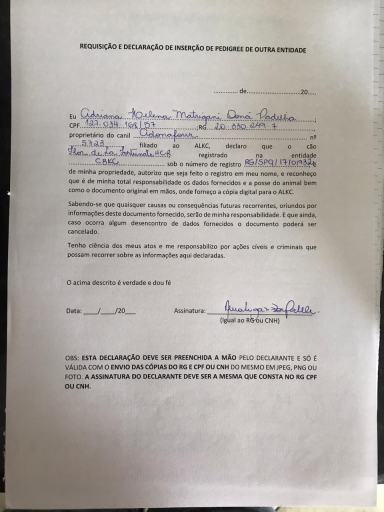 REQUISIÇÃO E DECLARAÇÃO DE INSERÇÃO DE PEDIGREE DE OUTRA ENTIDADE
............ de..............................20.....
Eu Adriana Helena Matugani Doná Padilha
CPF 127.034.168/57 RG 20.030.249-7
proprietário do canil Adonafour nº
5723 filiado ao ALKC, declaro que o cão
Flor de La Fortunato HCR registrado na entidade
CBKC sob o número de registro RG/SPQ/17/01932
de minha propriedade, autorizo que seja feito o registro em meu nome, e reconheço
que é de minha total responsabilidade os dados fornecidos e a posse do animal bem
como o documento original em mãos, onde forneço a cópia digital para o ALKC.
Sabendo-se que quaisquer causas ou consequências futuras recorrentes, oriundos por
informações deste documento fornecido, serão de minha responsabilidade. E que ainda,
caso ocorra algum desencontro de dados fornecidos o documento poderá ser
cancelado.
Tenho ciência dos meus atos e me responsabilizo por ações cíveis e criminais que
possam recorrer as informações aqui declaradas.
O acima descrito é verdade e dou fé
Data: ____/____/20___ Assinatura:
(Igual ao RG ou CNH)
OBS: ESTA DECLARAÇÃO DEVE SER PREENCHIDA A MÃO PELO DECLARANTE E SÓ É
VÁLIDA COM O ENVIO DAS CÓPIAS DO RG E CPF OU CNH DO MESMO EM JPEG, PNG OU
FOTO. A ASSINATURA DO DECLARANTE DEVE SER A MESMA QUE CONSTA NO RG CPF
OU CNH.